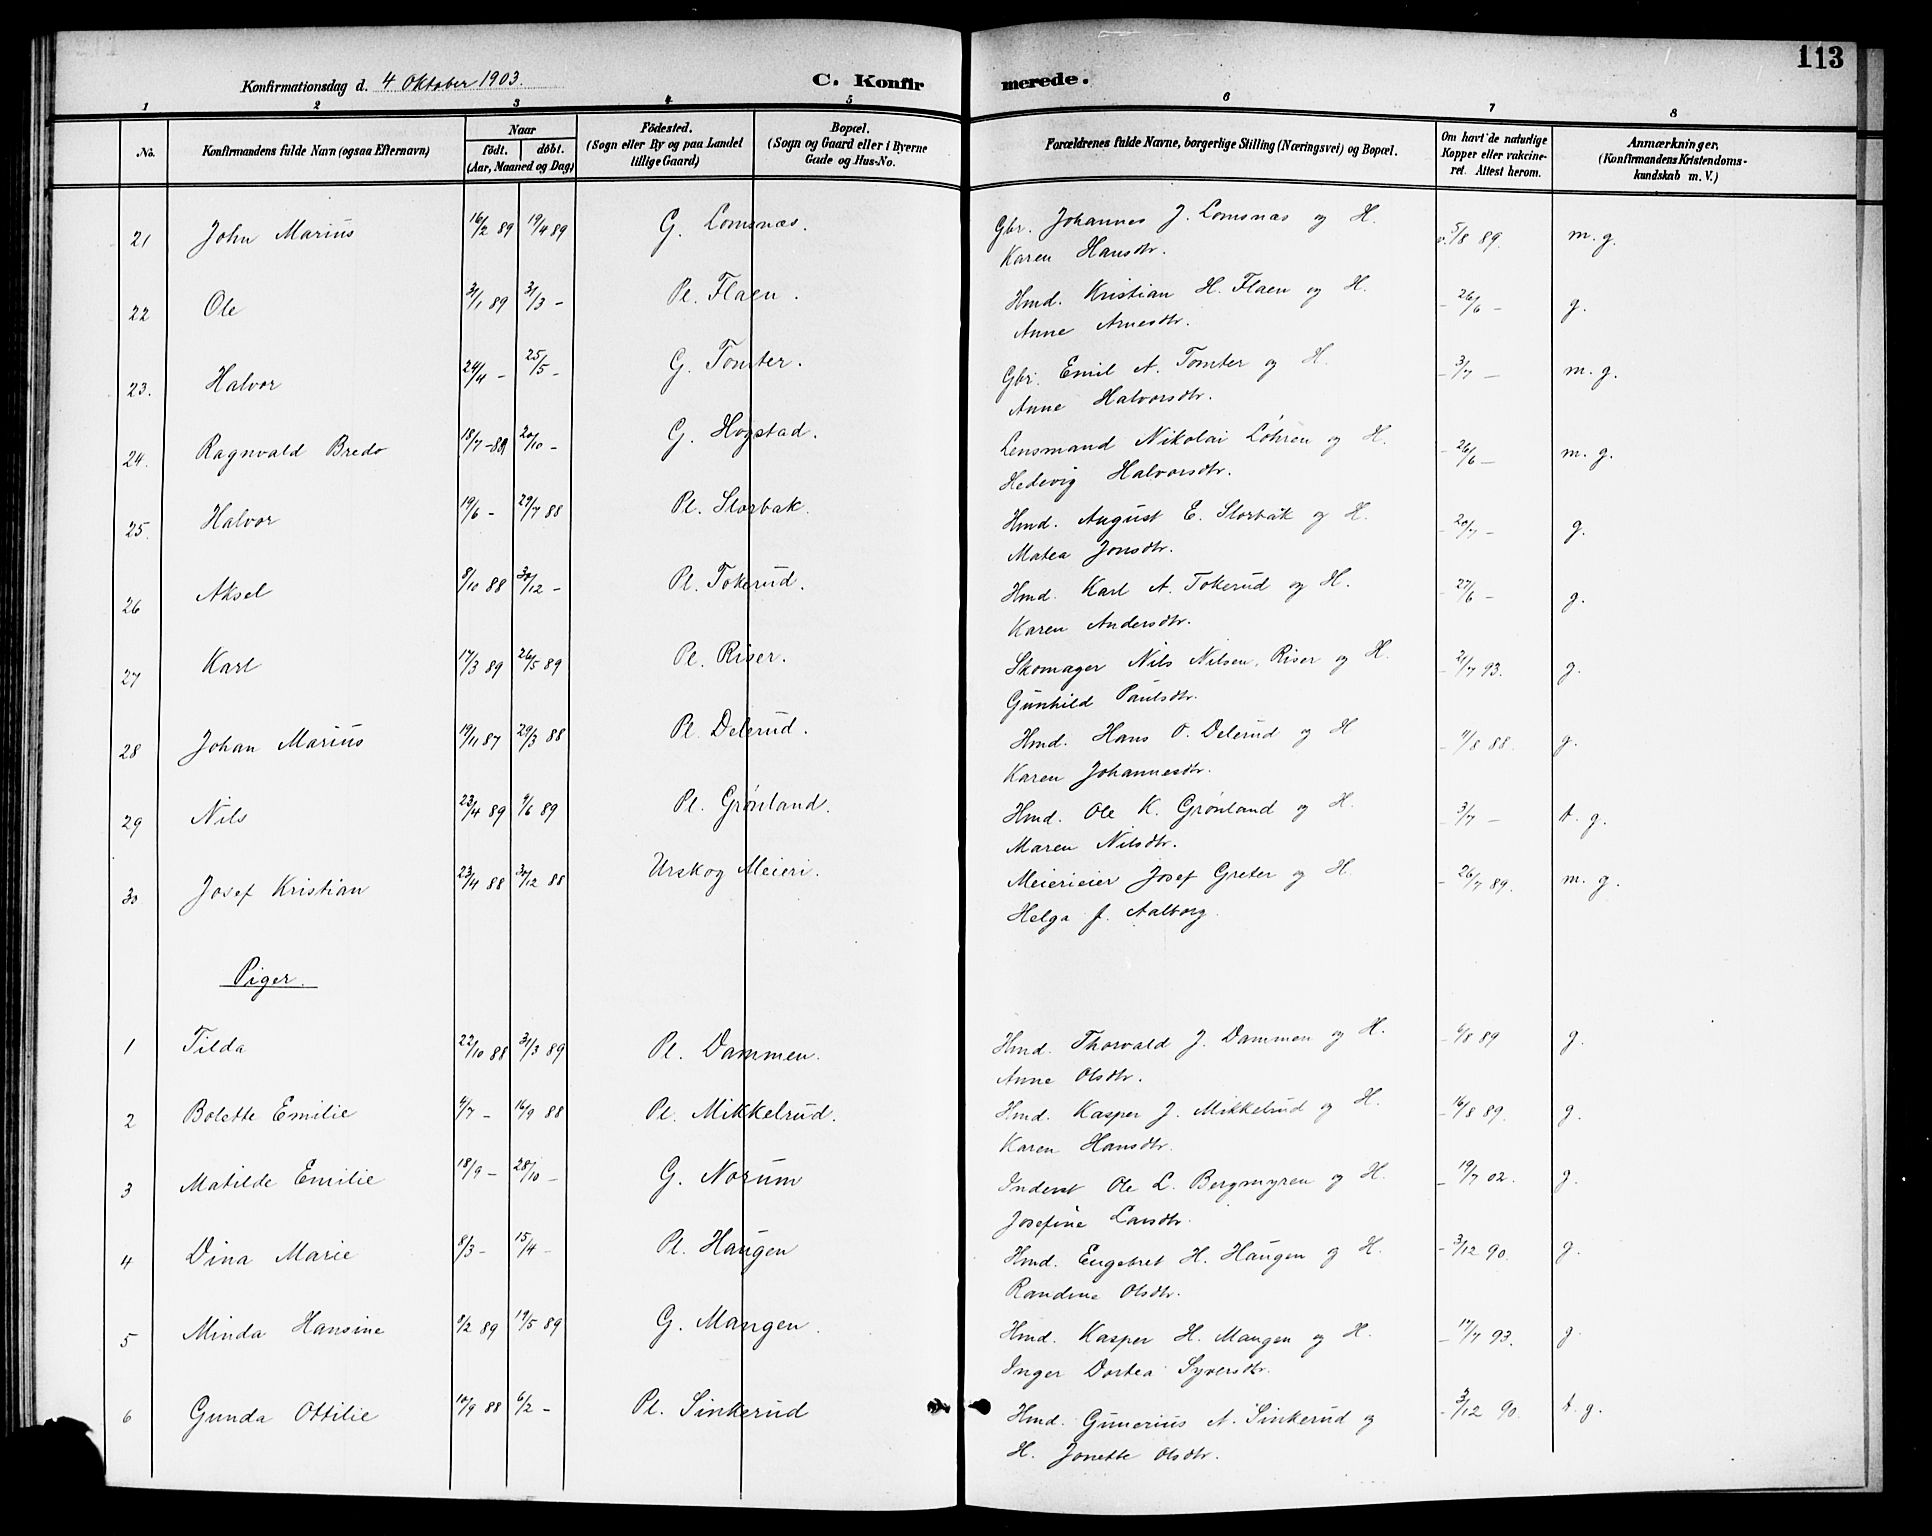 113
Konfirmationsdag d. 4 Oktober 1903.
C. Konfirmerede.
1 2 3 4 5 6 7 8
No.
Konfirmandens fulde Navn (ogsaa Efternavn)
Naar
födt. döbt.
(Aar, Maaned og Dag)
Födested.
(Sogn eller By og paa Landet
tillige Gaard)
Bopæl.
(Sogn og Gaard eller i Byerne
Gade og Hus-No.
Forældrenes fulde Navne, borgerlige Stilling (Næringsvei) og Bopæl.
Om havt de naturlige
Kopper eller vakcine-
ret. Attest herom.
Anmærkninger,
(Konfirmandens Kristendoms-
kundskab m. V.)
21 John Marius 16/2 89 19/4 89 G. Lomsnæs. Gbr. Johannes J. Lomsnæs og H. v. 5/8 89. m. g.
Karen Hansdtr.
22 Ole 31/1 89 31/3 - Pl. Flaen. Hmd. Kristian H. Flaen og H. - 26/6 - g.
Anne Arnesdtr.
23. Halvor 24/4 - 25/5 - G. Tomter. Gbr. Emil A. Tomter og H. - 3/7 - m. g.
Anne Halvorsdtr.
24. Ragnvald Bredo 18/7 - 89 20/10 - G. Hogstad. Lensmand Nikolai Löhren og H. - 26/6 - m. g.
Hedevig Halvorsdtr.
25. Halvor 19/6 - 29/7 88 Pl. Storbak. Hmd. August E. Storbak og H. - 20/7 - g.
Matea Jonsdtr.
26 Aksel 8/10 88 30/12 - Pl. Tokerud. Hmd. Karl A. Tokerud og H. - 27/6 - g.
Karen Andersdtr.
27 Karl 17/3 89 26/5 89 Pl. Riser. Skomager Nils Nilsen, Riser og H. - 21/7 93. g.
Gunhild Paulsdtr.
28 Johan Marius 19/11 87 29/3 88 Pl. Delerud. Hmd. Hans O. Delerud og H - 11/8 88. g.
Karen Johannesdtr.
29 Nils 23/4 89 9/6 89 Pl. Grönland. Hmd. Ole K. Grönland og H. - 3/7 - t. g.
Maren Nilsdtr.
30 Josef Kristian 23/4 88 30/12 88 Urskog Meieri. Meierieier Josef Greter og H. - 26/7 89. m. g.
Helga f. Aalborg.
Piger.
1 Tilda 22/10 88 31/3 89 Pl. Dammen. Hmd. Thorvald J. Dammen og H. - 6/8 89 g.
Anne Olsdtr.
2 Bolette Emilie 4/7 - 16/9 88 Pl. Mikkelrud. Hmd. Kasper J. Mikkelrud og H. - 16/8 89. g.
Karen Hansdtr.
3 Matilde Emilie 18/9 - 28/10 - G. Norum Inderst Ole L. Bergmyren og H. - 19/7 02. g.
Josefine Larsdtr.
4 Dina Marie 8/3 - 15/4 - Pl. Haugen Hmd. Engebret H. Haugen og H. - 3/12 90. g.
Randine Olsdtr.
5 Minda Hansine 9/2 89 19/5 89 G. Mangen. Hmd. Kasper H. Mangen og H. - 17/7 93. g
Inger Dortea Syversdtr.
6 Gunda Ottilie 10/9 88 6/2 - Pl. Sinkerud Hmd. Gunerius A. Sinkerud og - 3/12 90. t. g.
H. Jonette Olsdtr.